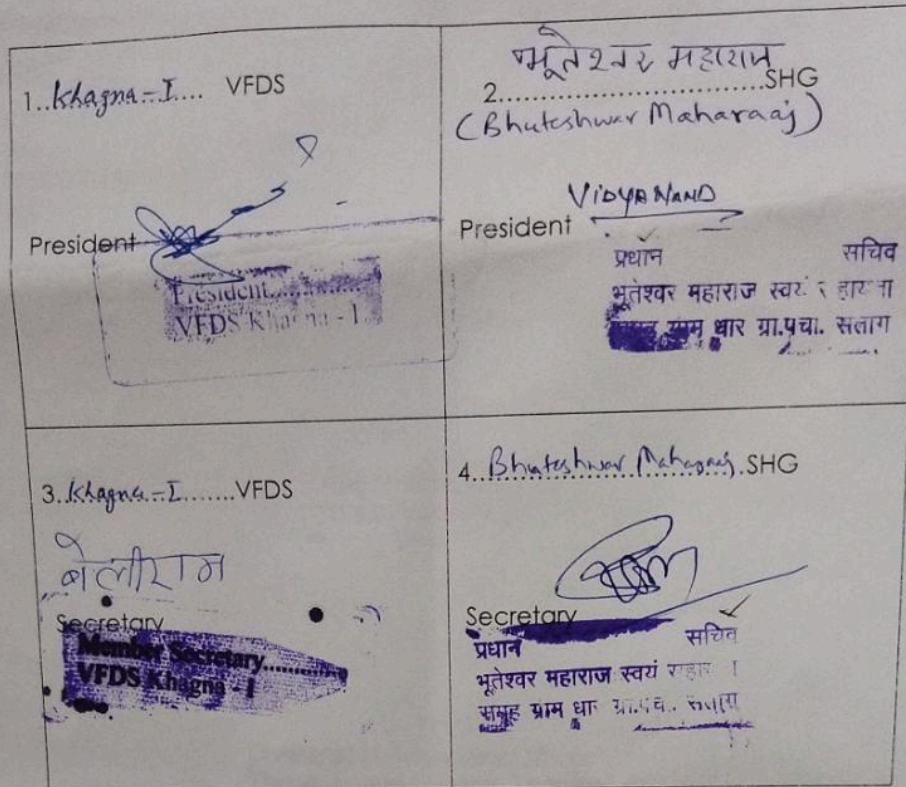 1..Khagna-I.... VFDS
President
President..........
VFDS Khagna - I
भूतेश्वर महाराज
2..............................SHG
(Bhuteshwar Maharaaj)
VIDYANAND
President
प्रधान सचिव
भूतेश्वर महाराज स्वयं
ग्राम धार ग्रा.पचा. सताग
3..Khagna-I.......VFDS
बेलीराम
Secretary
Member Secretary............
VFDS Khagna - I
4..Bhuteshwar Maharaaj..SHG
Secretary
प्रधान सचिव
भूतेश्वर महाराज स्वयं
समूह ग्राम धार ग्रा.पचा. सताग